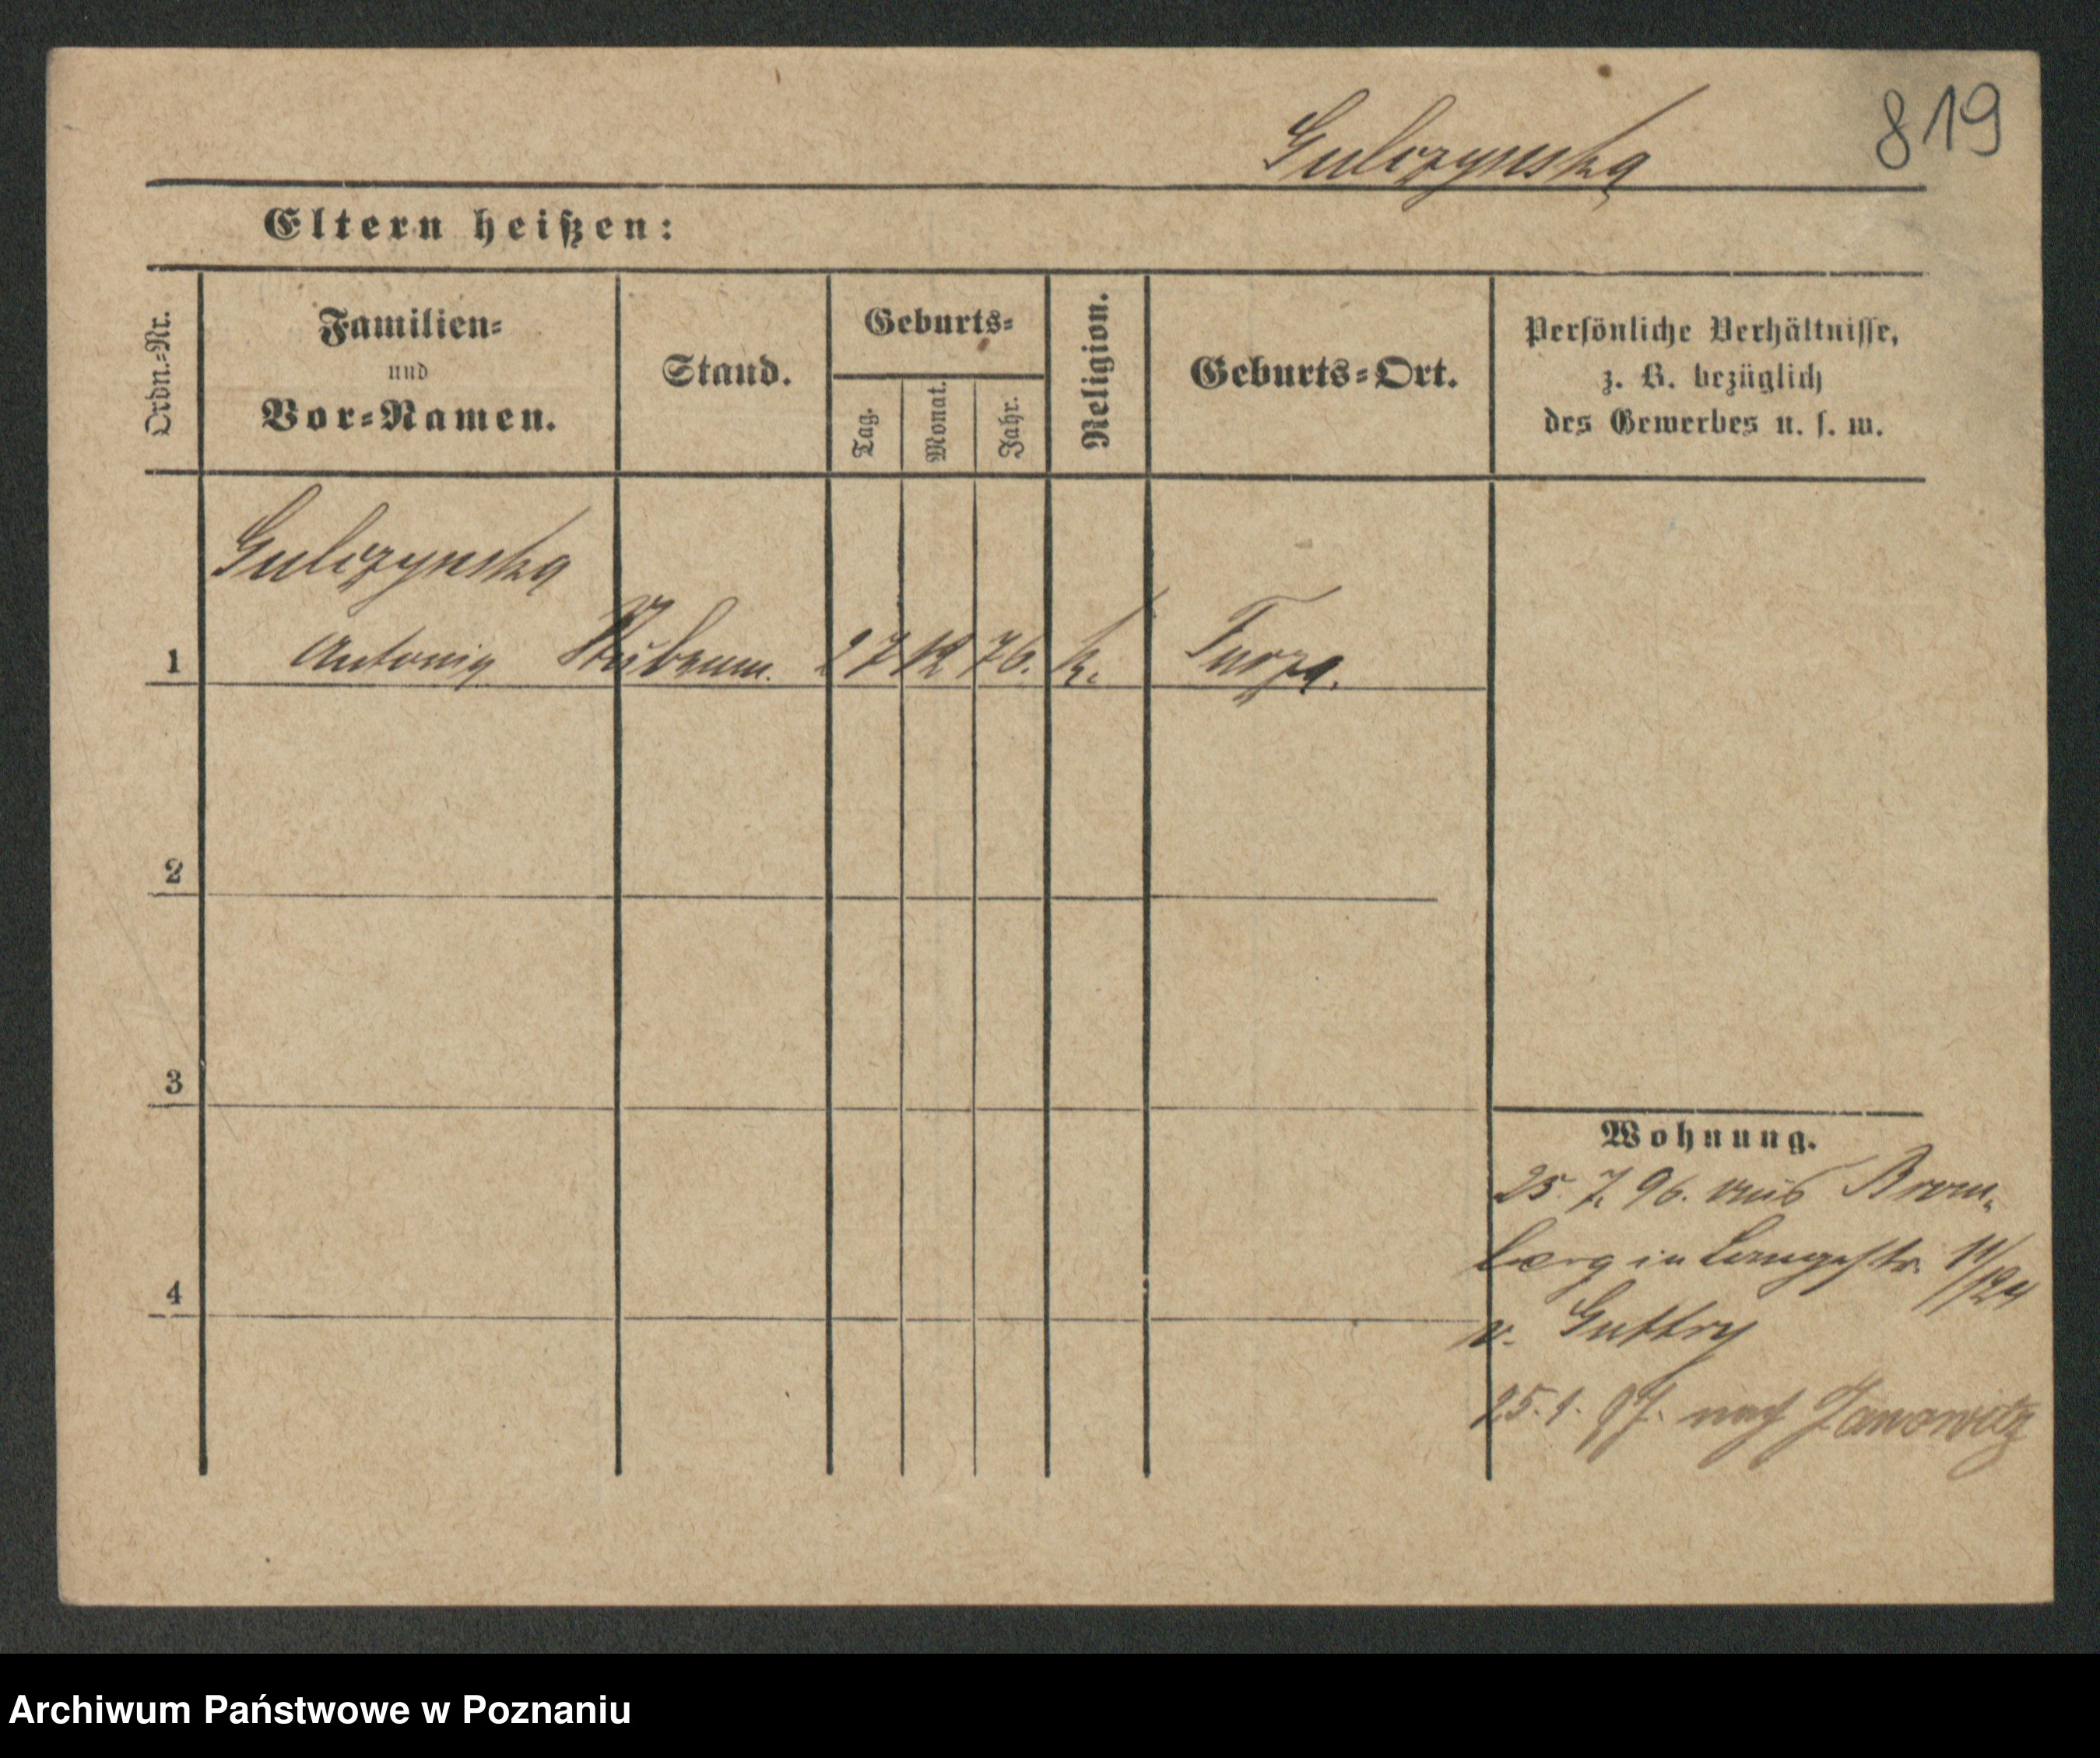 819
Gulczynska
Eltern heißen:
Ordn.-Nr.
Familien-
und
Vor-Namen.
Stand.
Geburts-
Tag.
Monat.
Jahr.
Religion.
Geburts-Ort.
Persönliche Verhältnisse,
z. B. bezüglich
des Gewerbes u. s. w.
Gulczynska
1 Antonia Stubenm. 27 12 76. k. Turza.
2
3
4
Wohnung.
25. 7. 96. aus Brom-
berg in Langestr. 11/124
v. Guttry
25. 1. 97. nach Janowitz
Archiwum Państwowe w Poznaniu